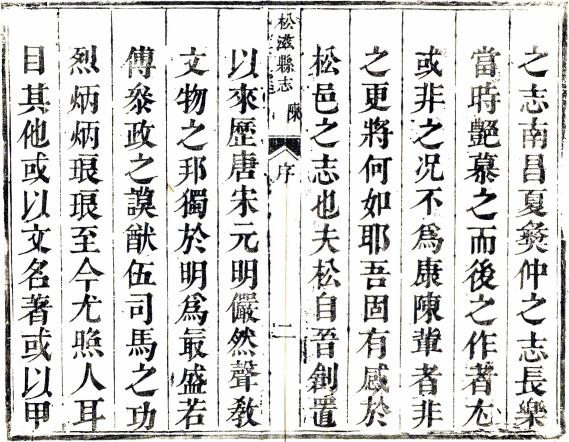 之志南昌夏彝仲之志長樂
當時艷慕之而後之作者尤
或非之况不爲康陳軰者非
之更將何如耶吾固有感於
松邑之志也夫松自晉創置
松滋縣志 陳序 二
以來歷唐宋元明儼然聲敎
文物之邦獨於明爲最盛若
傅叅政之謨猷伍司馬之功
烈炳炳琅琅至今尤照人耳
目其他或以文名著或以甲